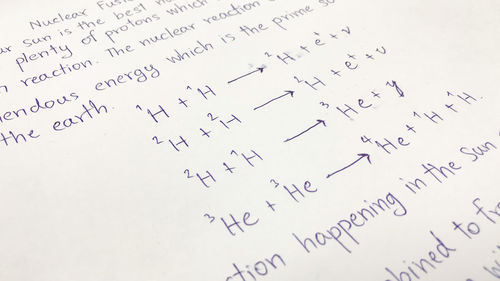 Nuclear Fusi
sun is the best
plenty of protons which
reaction. The nuclear reaction
endous energy which is the prime so
the earth.
¹H + ¹H → ²H + e⁺ + ν
²H + ²H → ²H + e⁺ + ν
²H + ¹H → ³He + y
³He + ³He → ⁴He + ¹H + ¹H.
ction happening in the sun
bined to